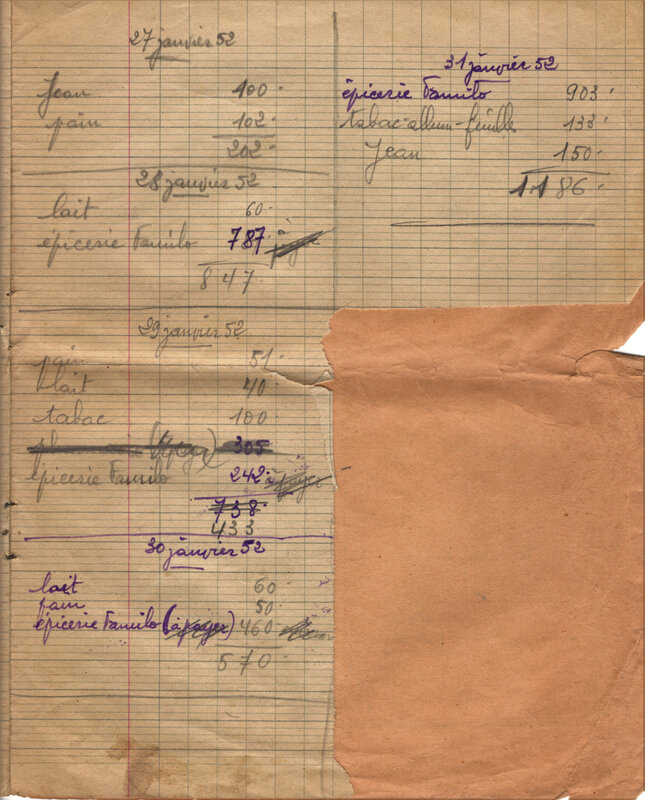 27 janvier 52
Jean 100
pain 102
202
28 janvier 52
lait 60
épicerie Familo 787 à payer
847
29 janvier 52
pain 51
lait 40
tabac 100
(à payer) 305
épicerie Familo 242 à payer
738
433
30 janvier 52
lait 60
pain 50
épicerie Familo (à payer) 460
570
31 janvier 52
épicerie Familo 903
tabac-allum-feuille 133
Jean 150
1186